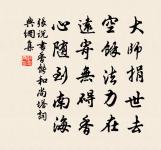 大師捐世去
空餘法力在
遠寄無碍香
心随到南海
張说書香能和尚塔詞
典網集